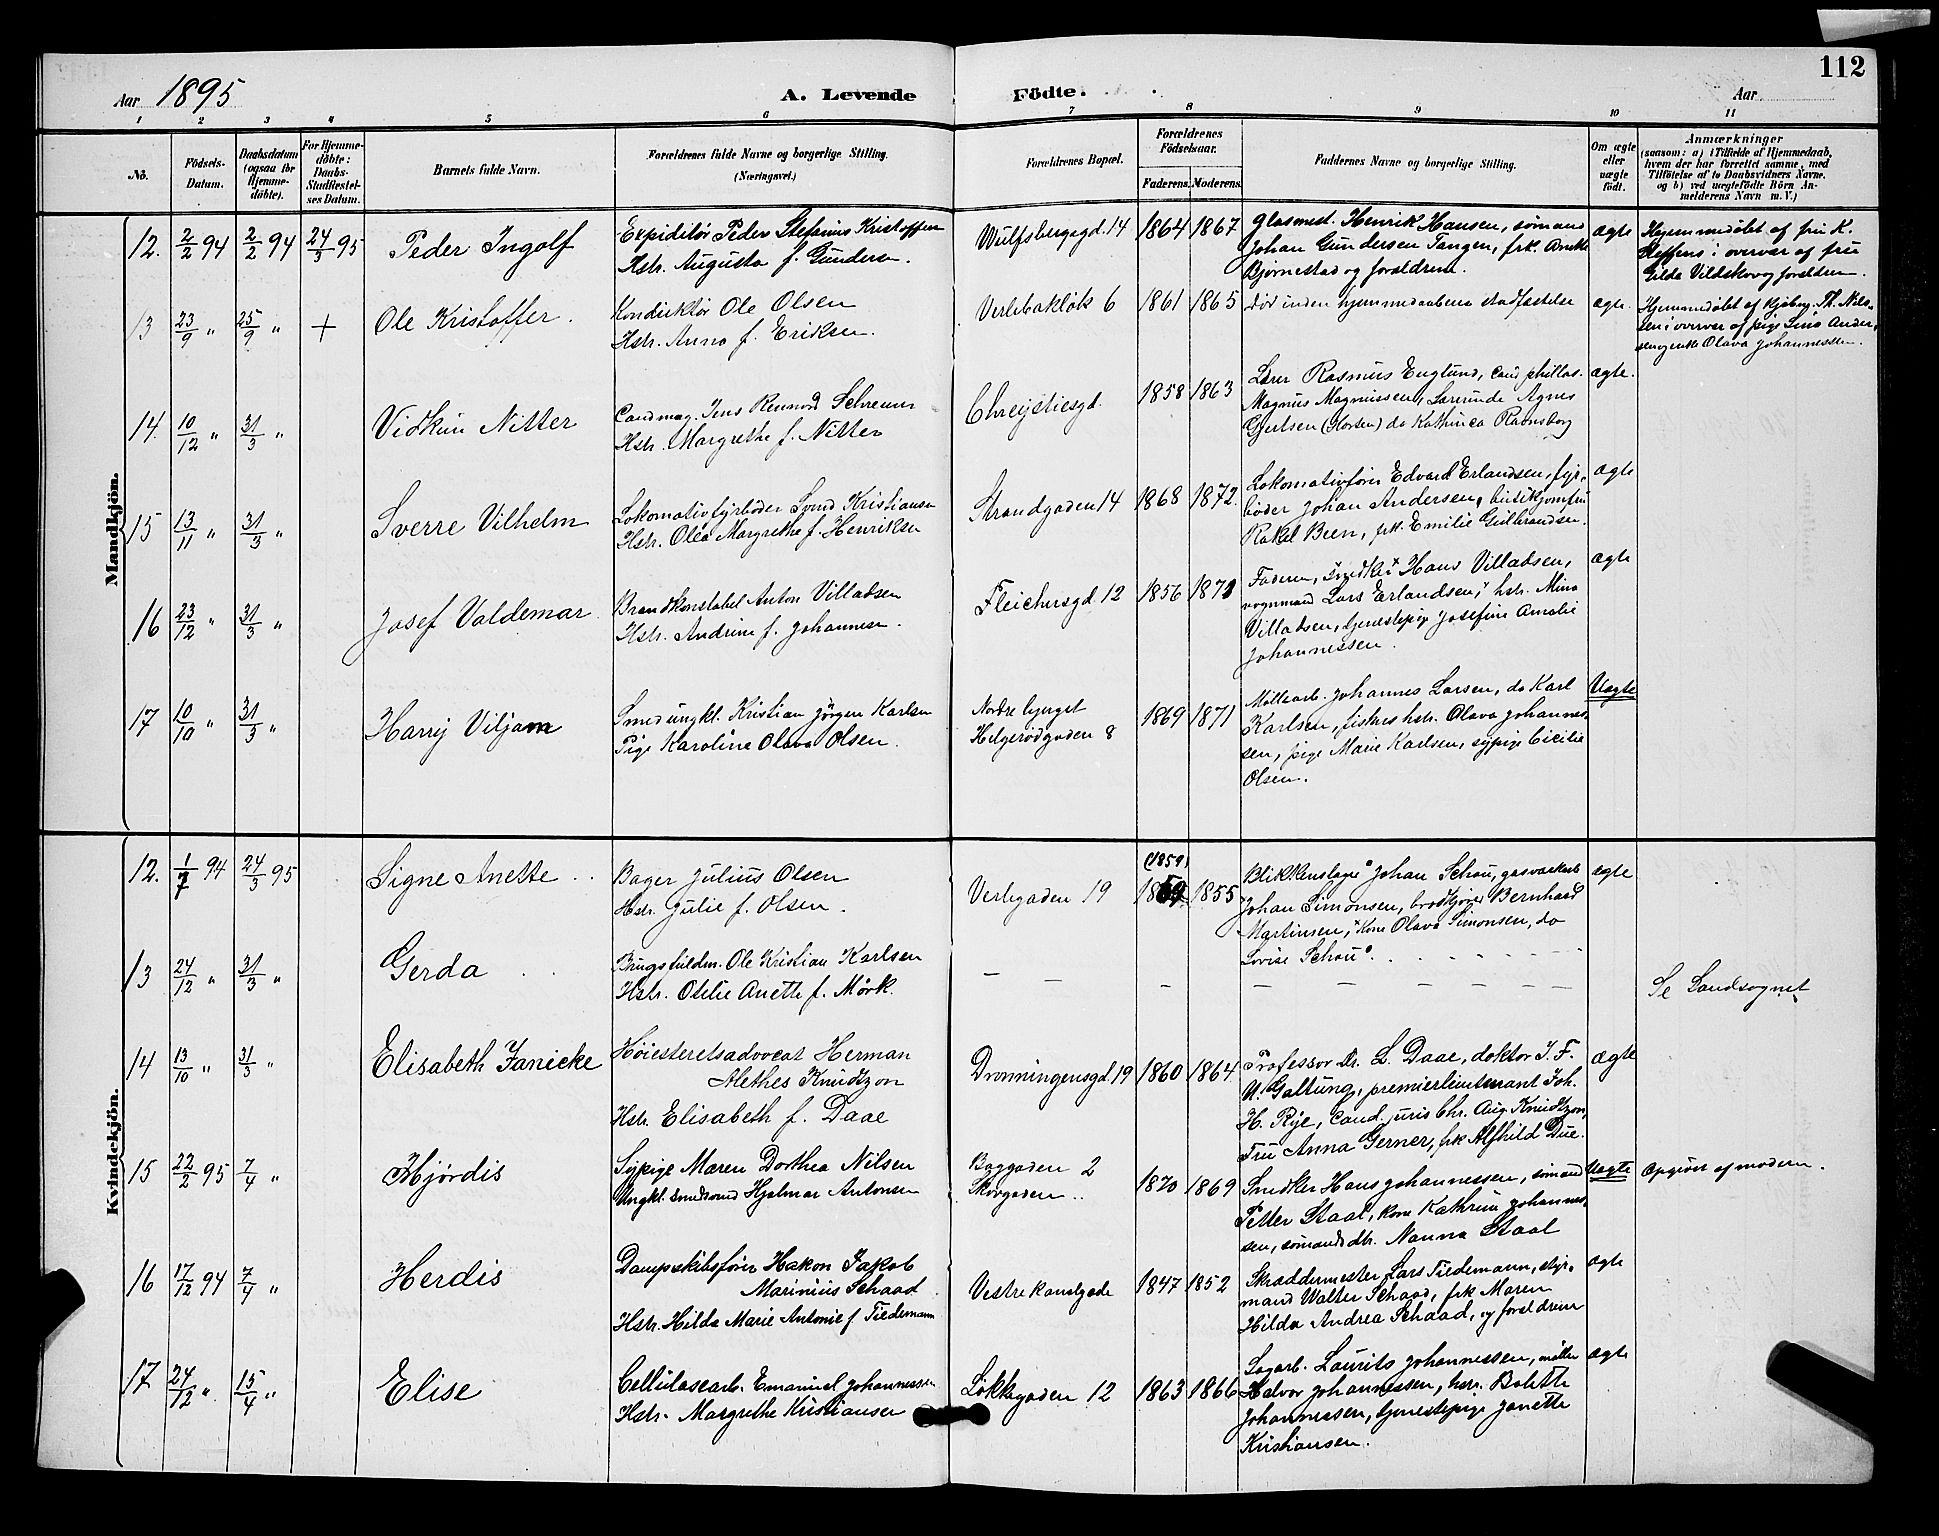 112
Aar 1895
A. Levende Födte.
Aar
1 2 3 4 5 6 7 8 9 10 11
No.
Födsels-Datum.
Daabsdatum (ogsaa for Hjemme-döbte).
For Hjemme-döbte: Daabs-Stadfæstel-ses Datum.
Barnets fulde Navn.
Forældrenes fulde Navne og borgerlige Stilling. (Næringsvei.)
Forældrenes Bopæl.
Forældrenes Födselsaar.
Faderens. Moderens.
Faddernes Navne og borgerlige Stilling.
Om ægte eller uægte födt.
Anmærkninger
(saasom: a) i Tilfælde af Hjemmedaab,
hvem der har forrettet samme, med
Tilföielse af to Daabsvidners Navne,
og b) ved uægtefödte Börn An-
melderens Navn m. V.)
Mandkjön.
12. 2/2 94 2/2 94 24/3 95 Peder Ingolf
Expeditör Peder Stefanus Kristoffersen
Hstr. Augusta f. Gundersen.
Wulfsbergsgd. 14 1864 1867
Glasmest. Henrik Hansen, sömand
Johan Gundersen Tangen, frk.
Bjørnestad og forældrene.
ægte
Hjemmedøbt af fru K.
Steffens i overvær af fru
Gilda og forældrene.
13 23/9 " 25/9 " + Ole Kristoffer.
Konduktör Ole Olsen
Hstr. Anna f. Eriksen.
Verlebakløk 6 1861 1865
död inden hjemmedaabens stadfæstelse
ægte
Hjemmedøbt af Th. Nils-
sen i overvær af pige Lina Ander-
sen og enke Olava Johannessen.
14. 10/12 " 31/3 " Vidkun Nitter
Cand mag. Jens Rennord Schreiner
Hstr. Margrethe f. Nitter
Chreystiesgd. 1858 1863
Lærer Rasmus Englund, cand philos.
Magnus Magnussen, Lærerinde Agnes
Gjertsen (Horten) do Kathinca Ravnsborg
ægte.
15 13/11 " 31/3 " Sverre Vilhelm
Lokomotivfyrböder Svend Kristiansen
Hstr. Olea Margrethe f. Henriksen
Strandgaden 14 1868 1872.
Lokomotivförer Edvard Erlandsen, fyr-
böder Johan Andersen, butikjomfru
Rakel Been, frk. Emilie Gulbrandsen.
ægte
16 23/12 " 31/3 " Josef Valdemar
Brandkonstabel Anton Villadsen
Hstr. Andrine f. Johannesen.
Fleichersgd. 12 1856 1871
Faderen, snedker Hans Villadsen,
vognmand Lars Erlandsen, hstr. Mina
Villadsen, tjenestepige Josefine Amalie
Johannessen.
ægte
17 10/10 " 31/3 " Harry Viljam
Smed ungkl. Kristian Jörgen Karlsen
Pige Karoline Olava Olsen.
Nordre byerget
Helgerödgaden 8 1869 1871
Möllearb. Johannes Larsen, do Karl
Karlsen, fiskers hstr. Olava Johannes-
sen, pige Marie Karlsen, sypige Cicilie
Olsen.
Uægte
Kvindekjön.
12. 1/7 94 24/3 95 Signe Anette
Bager Julius Olsen
Hstr. Julie f. Olsen.
Verlegaden 19 (1859) 1855
Blikkenslager Johan Schou, gasværksarb
Johan Simonsen, brödkjörer Bernhard
Martinsen, Kone Olava Simonsen, do
Lovise Schou.
ægte
13 24/12 " 31/3 " Gerda
Brugsfuldm. Ole Kristian Karlsen
Hstr. Otilie Anette f. Mörk.
Se Landsognet
14 13/10 " 31/3 " Elisabeth Janicke
Höiesteretsadvocat Herman
Alethes Knudtzon
Hstr. Elisabeth f. Daae
Dronningensgd. 19 1860 1864
Professor Dr. L. Daae, doktor I. F.
N. Galtung, premierlieutenant Joh.
H. Rye, Cand. juris Chr. Aug. Knudtzon,
Fru Anna Gerner, frk Alfhild Due.
ægte
15 22/2 95 7/4 " Hjördis
Sypige Maren Dorthea Nilsen
Ungkl. Hjalmar Antonsen
Baggaden 2
Skovgaden " 1870 1869
Snedker Hans Johannessen, sömand
Petter Staal, kone Kathrine Johannes-
sen, sömands dtr. Nanna Staal
Uægte
Opgivet af moderen.
16 17/12 94 7/4 " Herdis
Dampskibsförer Hakon Jakob
Marinius Schaad
Hstr. Hilda Marie Antonie f Tiedemann
Vestre kanalgade 1847 1852
Skræddermester Lars Tiedemann, styr-
mand Walter Schaad, frk Maren
Hilda Andrea Schaad, og forældrene
ægte
17 24/12 " 15/4 " Elise
Cellulosearb. Emanuel Johannessen
Hstr. Margrethe Kristiansen
Løkkegaden 12 1863 1866
Sagarb. Laurits Johannessen, möller
Halvor Johannessen, hstr. Bolette
Johannessen, tjenestepige Janette
Kristiansen.
ægte